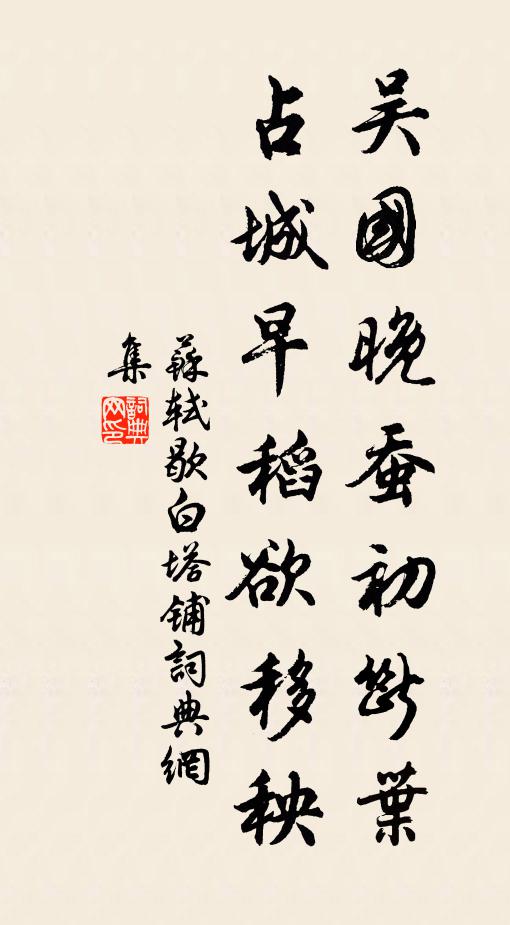 吴國晚蚕初斷葉
占城早稻欲移秧
蘇軾歇白塔铺詞典網
集
詞典网印